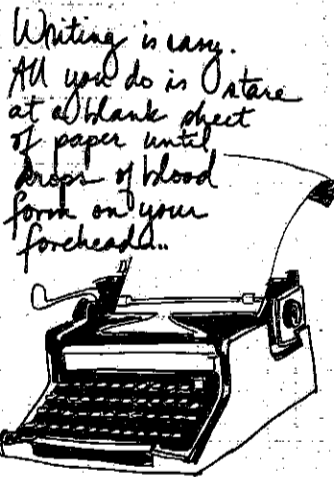 Writing is easy.
All you do is stare
at a blank sheet
of paper until
drops of blood
form on your
forehead...